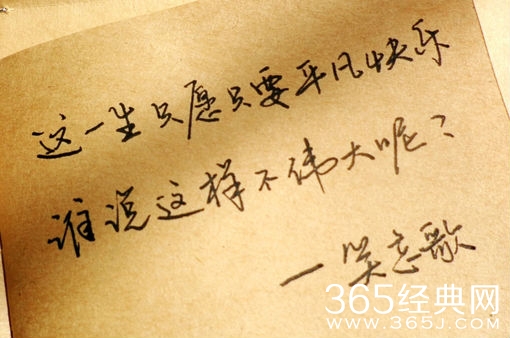 这一生只愿只要平凡快乐
谁说这样不伟大呢?
一笑忘歌
365经典网
www.365j.com